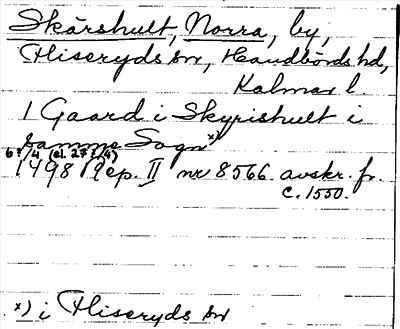 Skärshult, Norra, by,
Hliseryds sn, Handbörds hd,
Kalmar l.
1 Gaard i Skyrishult i
samme Sogn x)
6?/4 (el. 27?/4)
1498 Rep. II nr 8566. avskr. fr.
c. 1550.
x) i Hliseryds sn